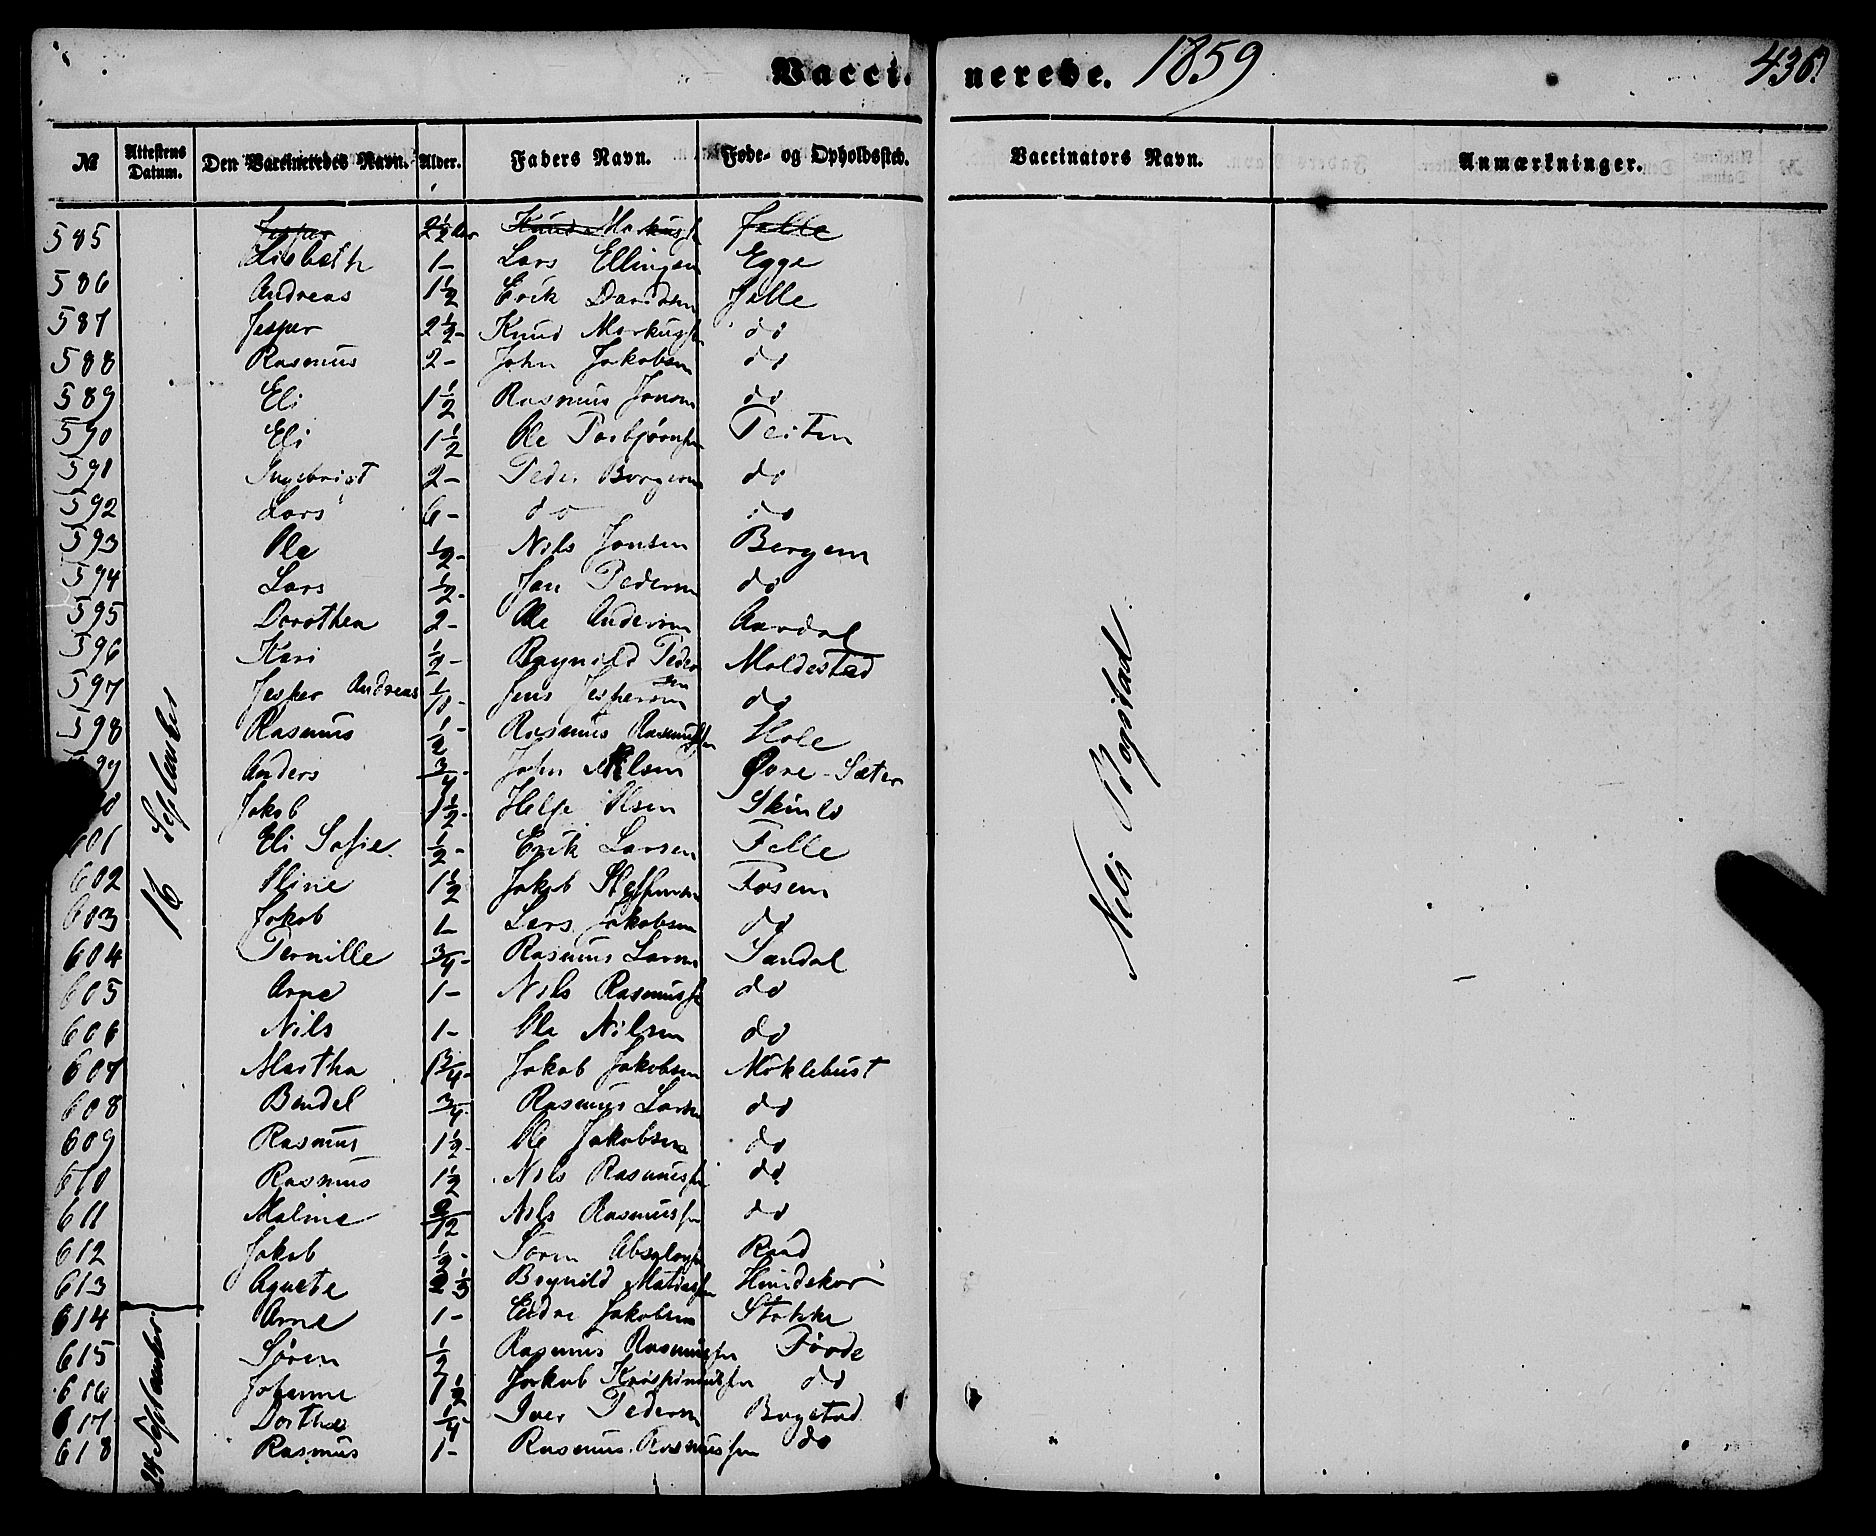 Vaccinerede. 1859 436
№ Attestens Datum. Den Vaccineredes Navn. Alder. Faders Navn. Føde- og Opholdssted. Vaccinators Navn. Anmærkninger.
Jesper 2½ Aar Knud Markuss Jølle
585 Lisbeth 1- Lars Ellingsen Egge
586 Andreas 1½ Erik Davidsen Jølle
587 Jesper 2½- Knud Markuss do
588 Rasmus 2- John Jakobsen do
589 Eli 1½ Rasmus Jonsen do
590 Eli 1½ Ole Torbjørnsen Teiten
591 Ingebrigt 2- Peder do
592 Lars 6- do do
593 Ole ½- Nils Jonsen Bergem
594 Lars ½- Jan Pedersen do
595 Dorothea 2- Ole Andersen Aardal
596 Kari ½- Bagnild Pedersen Moldestad
597 Jesper Andreas Jens Jespersen do
598 Rasmus ½- Rasmus Rasmussen Hole
99 Anders ¾- John Nilsen Øvre-Sæter
0 Jakob 1½- Helje Olsen
601 Eli Sofie ½- Erik Larsen Felle
602 Oline 1½ Jakob Fosem
603 Jakob 1- Lars Jakobsen do
604 Pernille ¾- Rasmus Larsen Sandal
605 Arne 1- Nils Rasmussen do
606 Nils 1- Ole Nilsen do
607 Martha 1¾- Jakob Jakobsen Möklebust
608 Bendel ¾- Rasmus Larsen do
609 Rasmus 1½- Ole Jakobsen do
610 Rasmus 1½ Nils Rasmussen do
611 Malene 9/12 Nils Rasmussen do
612 Jakob ½- Sören Absalons
613 Agnete Bagnild Matiassen
614 Arne 1- Endre Jakobsen Stokke
615 Søren ½ Rasmus Rasmussen Förde
616 Johanne 1½ Jakob Krispinussen do
617 Dorthea ¼- Iver Pedersen Bogstad
618 Rasmus 1- Rasmus Rasmussen do
16 September
24 September
Nils Bogstad